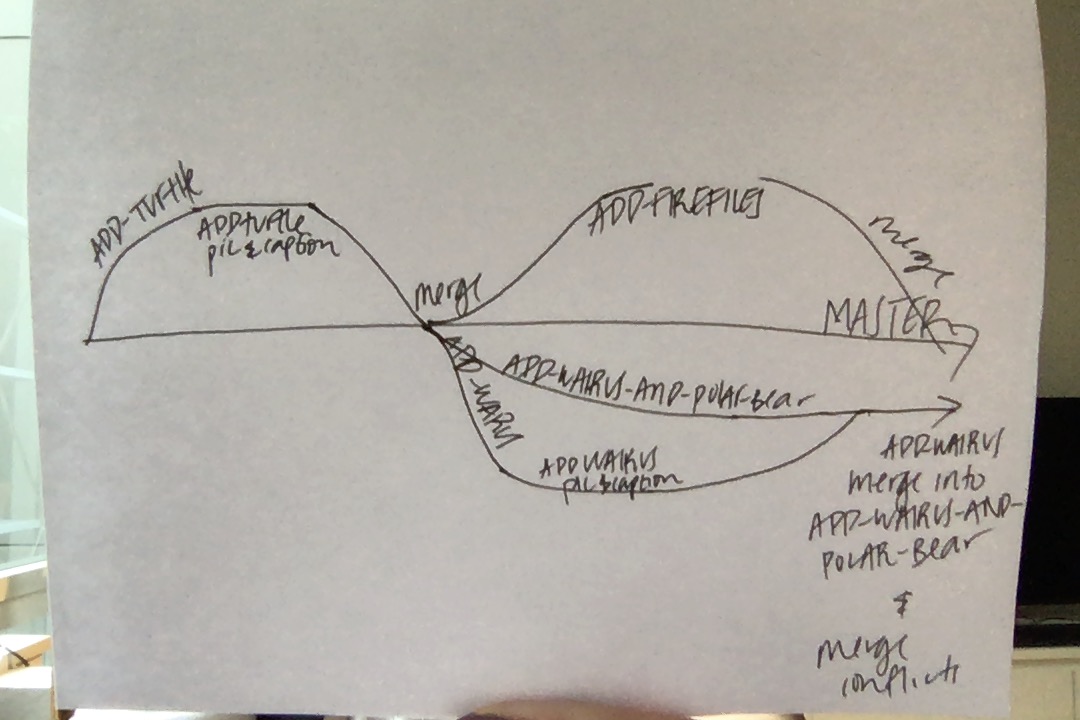 ADD-TURTLE
ADD TURTLE
pic & caption
merge
ADD-FIREFLIES
merge
MASTER
ADD-WALRUS
ADD-WALRUS-AND-POLAR-Bear
ADD WALRUS
pic & caption
ADD WALRUS
merge into
ADD-WALRUS-AND-
POLAR-Bear
&
merge
conflicts